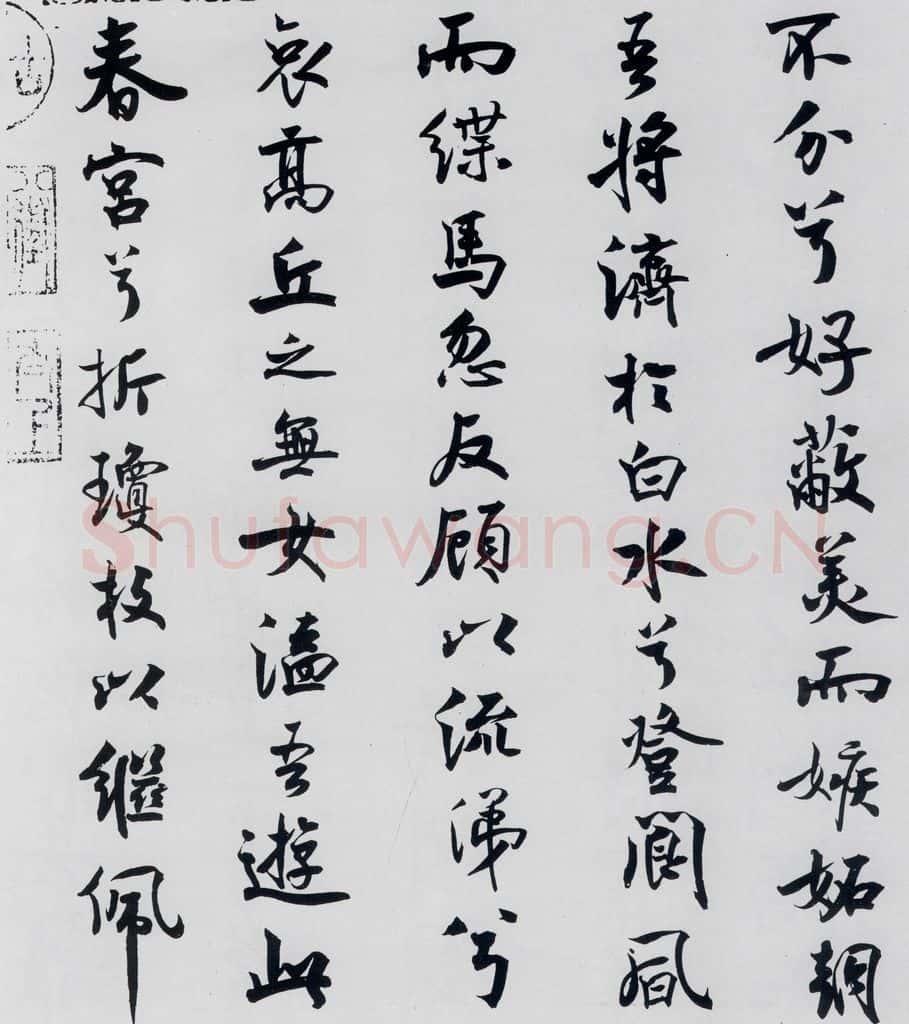 不分兮好蔽美而嫉妬朝
吾將濟於白水兮登閬風
而緤馬忽反顧以流涕兮
哀高丘之無女溘吾遊此
春宮兮折瓊枝以繼佩
Shufawang.CN